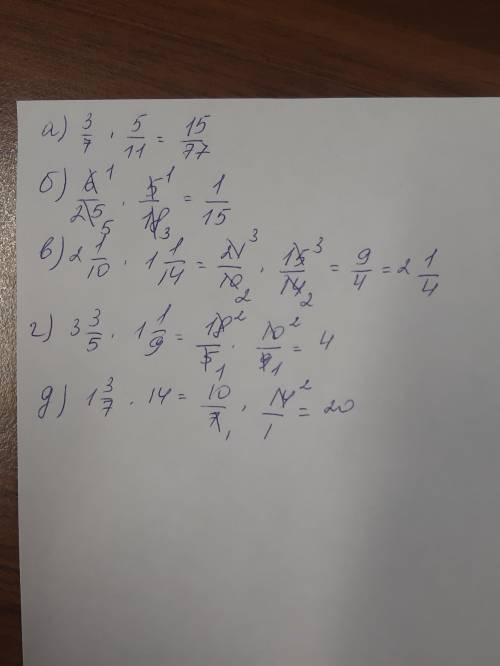 а) 3/7 · 5/11 = 15/77
б) 6 1/25 5 · 5 1/18 3 = 1/15
в) 2 1/10 · 1 1/14 = 21 3/10 2 · 15 3/14 2 = 9/4 = 2 1/4
г) 3 3/5 · 1 1/9 = 18 2/5 1 · 10 2/9 1 = 4
д) 1 3/7 · 14 = 10/7 1 · 14 2/1 = 20